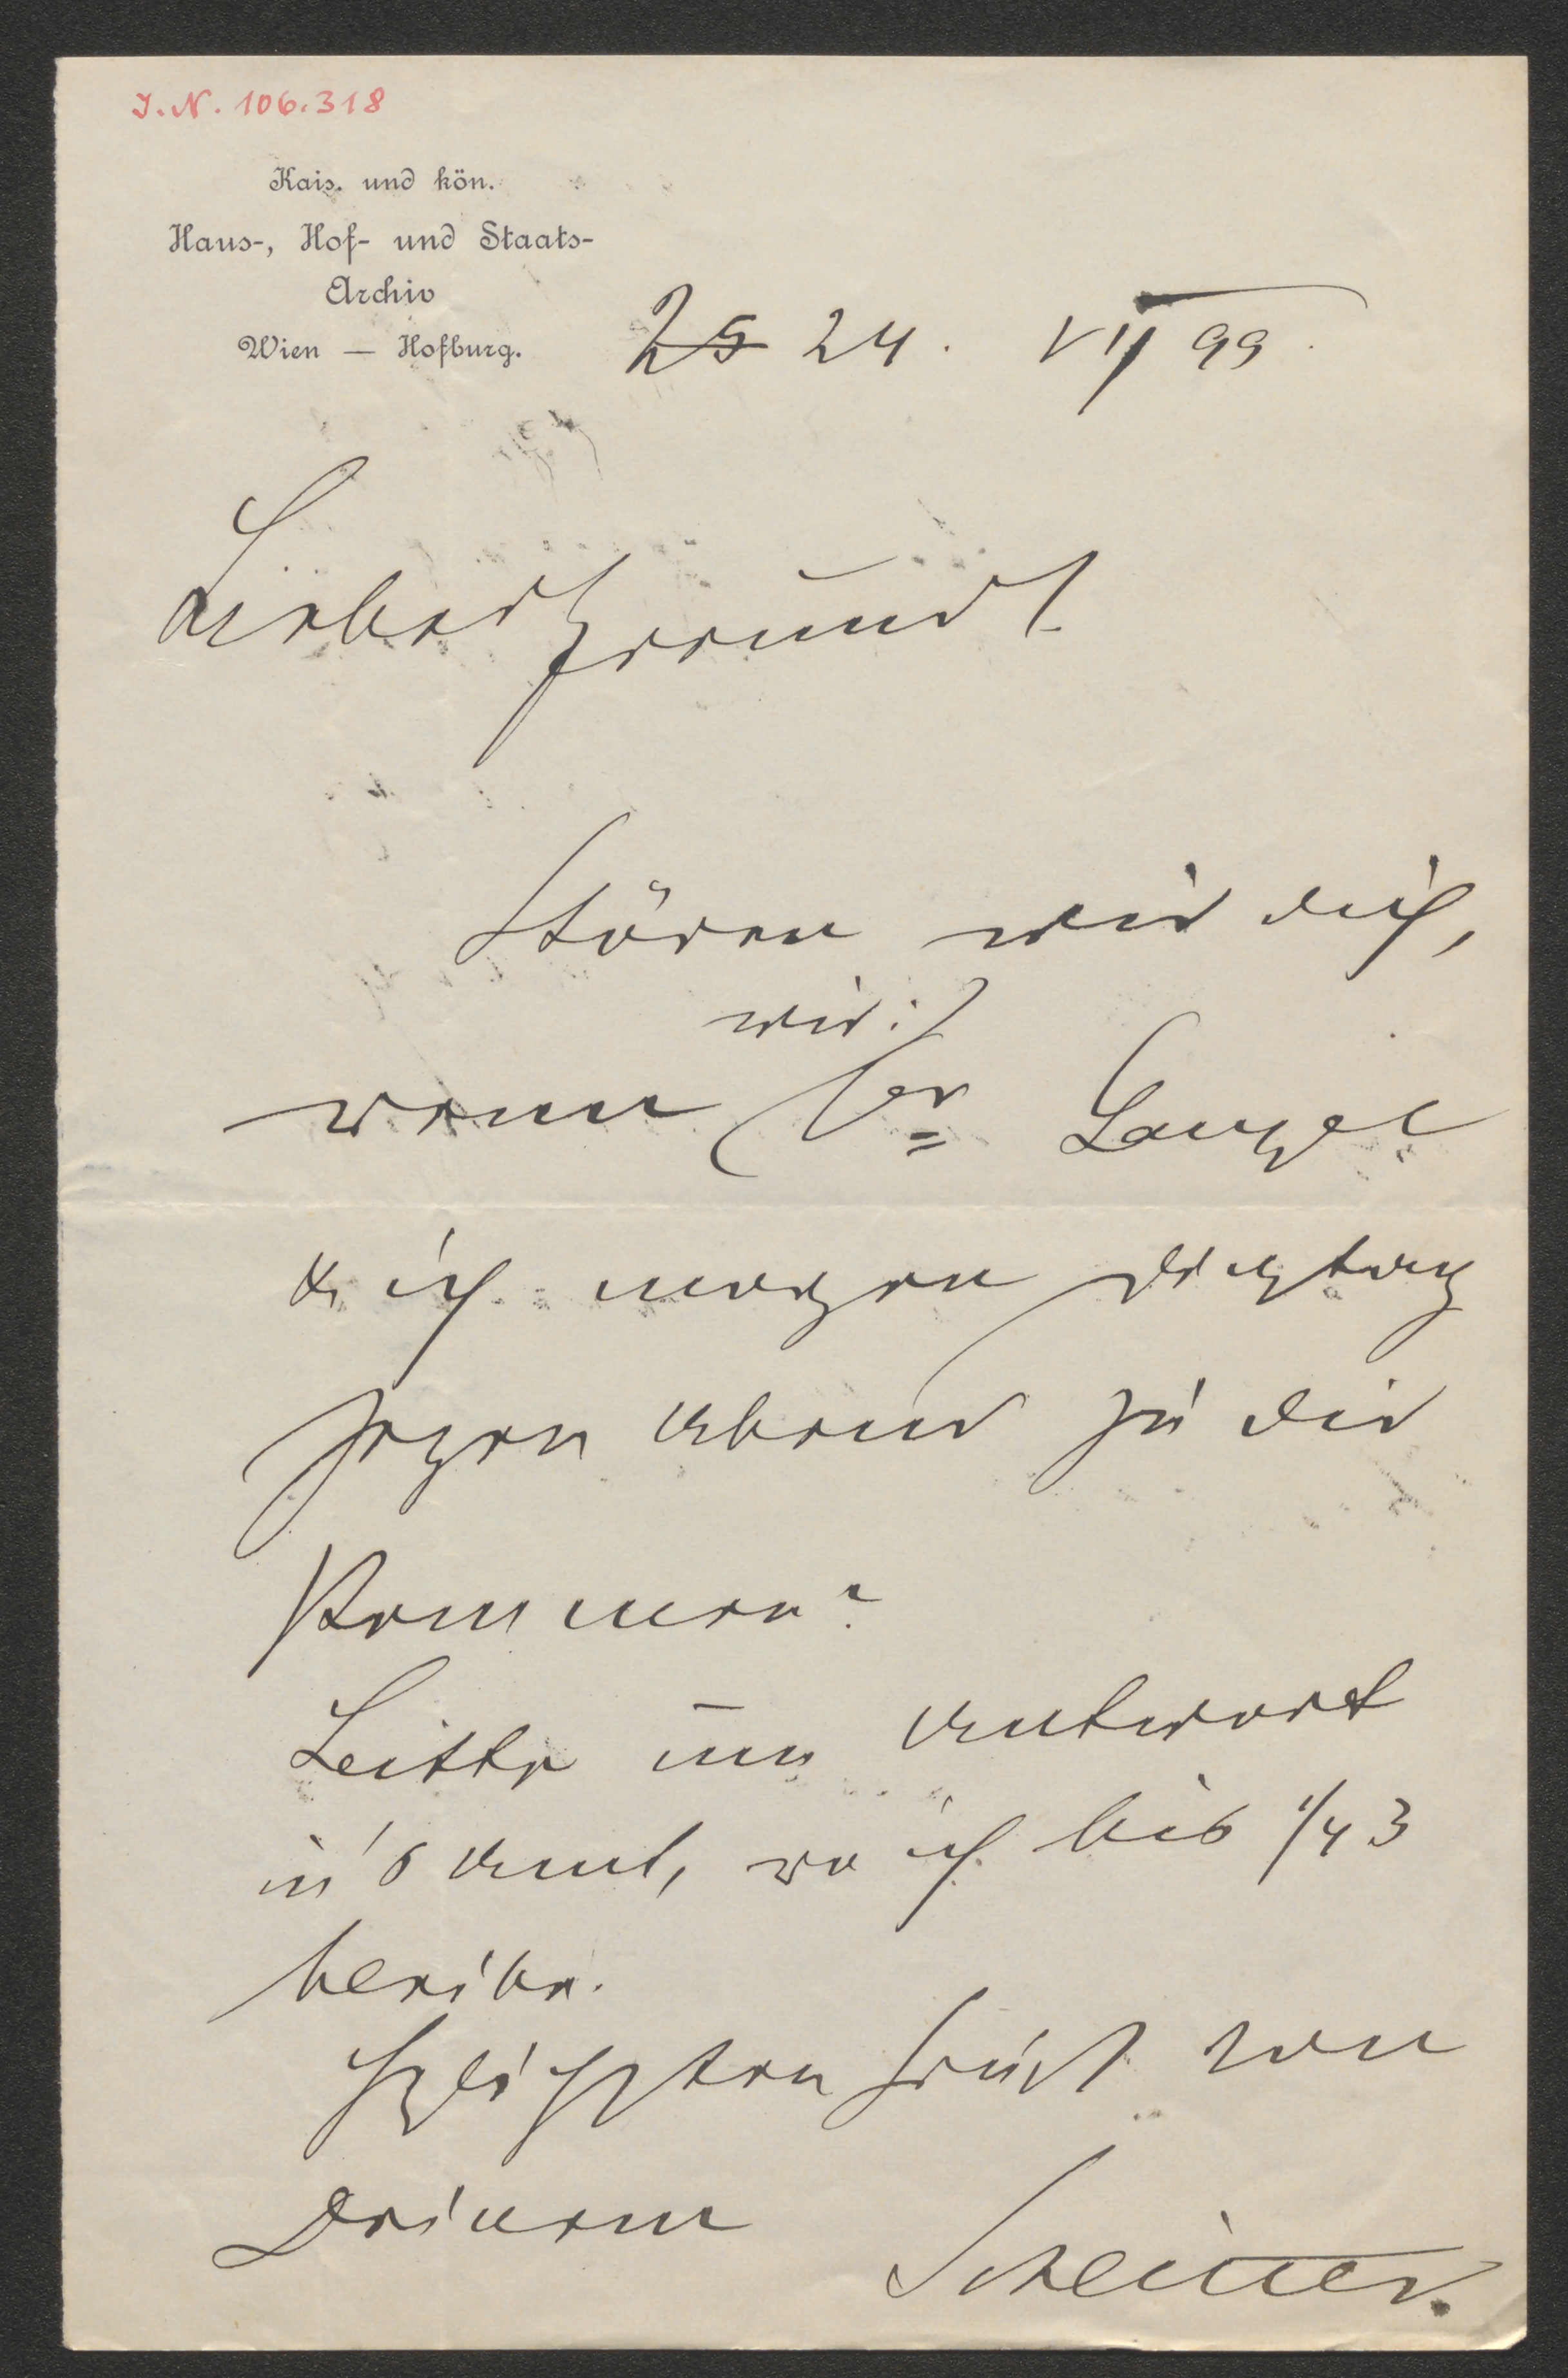 I.N. 106.318
Kais. und kön.
Haus-, Hof- und Staats-
Archiv
Wien — Hofburg.
25 24. VII 99.
Lieber Freund!
Stören wir dich,
wir:
wenn Dr Lampel
& ich morgen Dienstag
gegen Abend zu dir
kommen?
Bitte um Antwort
in's Amt, wo ich bis 1/4 3
bleibe.
Hzlichsten Gruß von
Deinem
Schlitter.